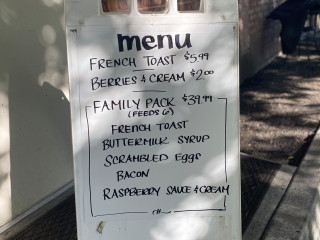 menu
FRENCH TOAST $5.99
BERRIES & CREAM $2.00
FAMILY PACK $39.99
(FEEDS 6)
FRENCH TOAST
BUTTERMILK SYRUP
SCRAMBLED EGGS
BACON
RASPBERRY SAUCE & CREAM